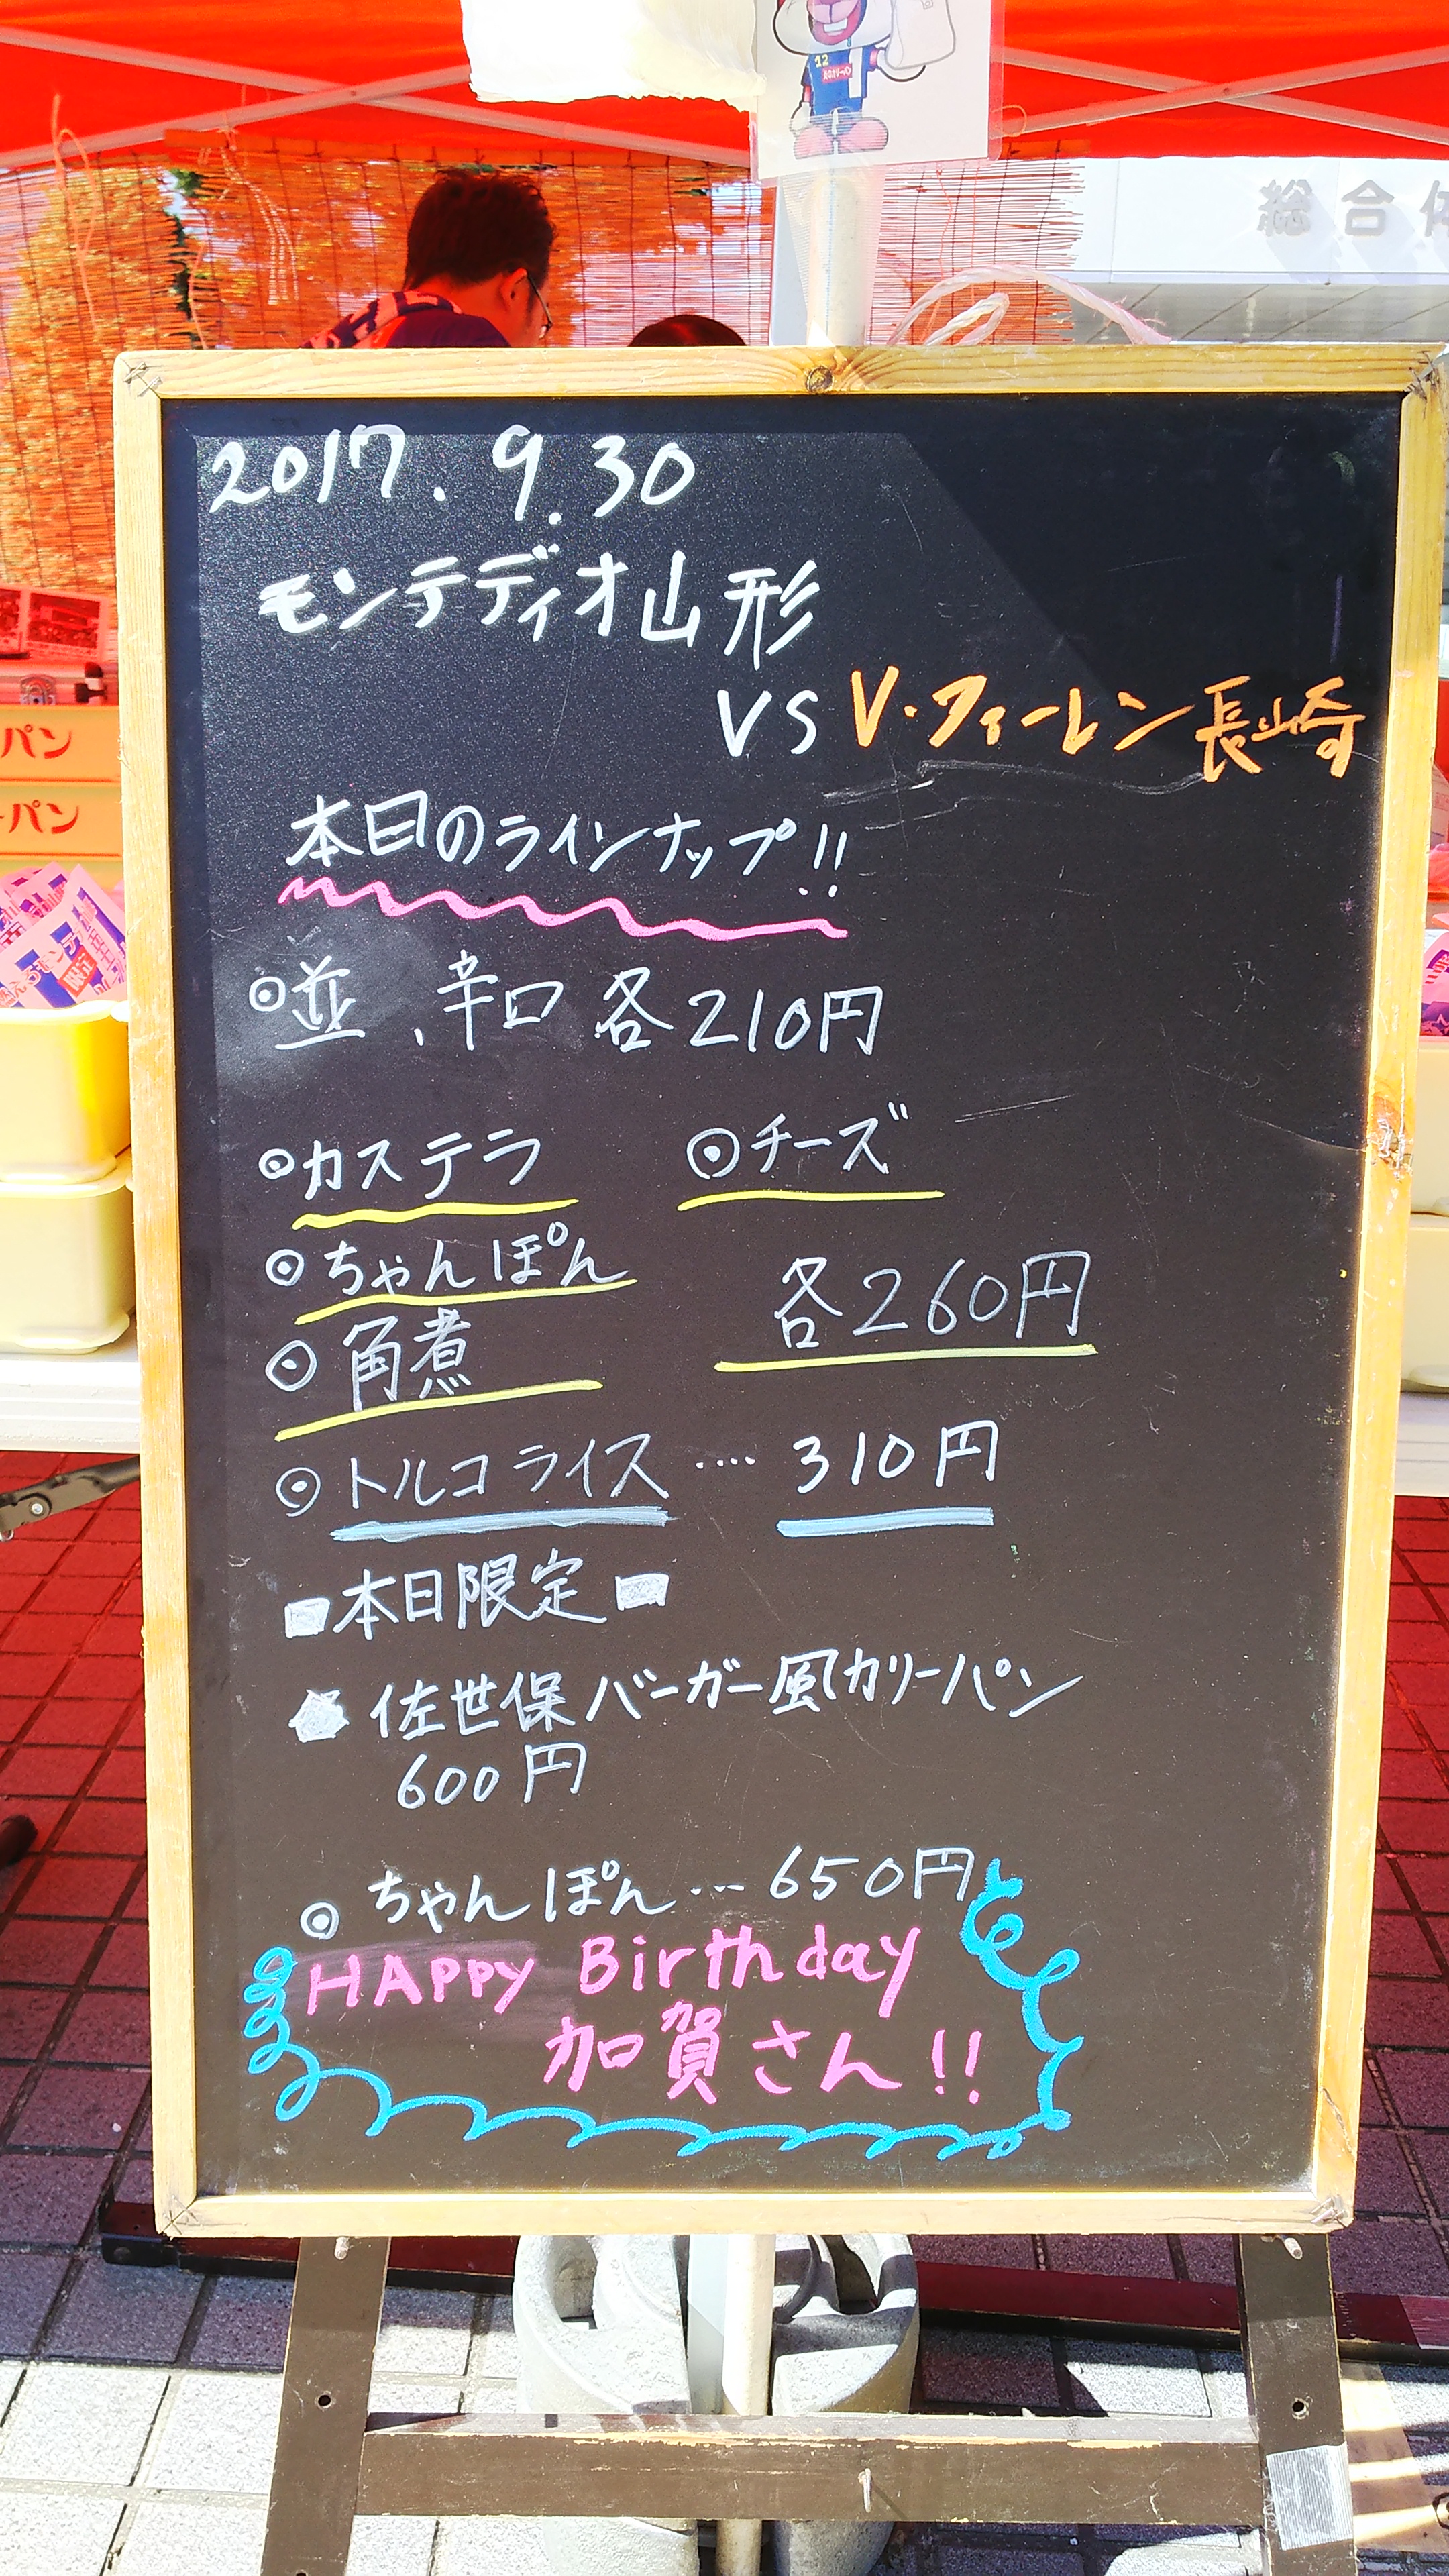 12
総合体
2017.9.30
モンテディオ山形
VS V・ファーレン長崎
本日のラインナップ!!
◎並、辛口 各210円
◎カステラ ◎チーズ
◎ちゃんぽん
各260円
◎角煮
◎トルコライス ‥‥ 310円
■本日限定■
佐世保バーガー風カリーパン
600円
◎ちゃんぽん … 650円
HAppy Birthday
加賀さん!!
パン
ーパン
限定